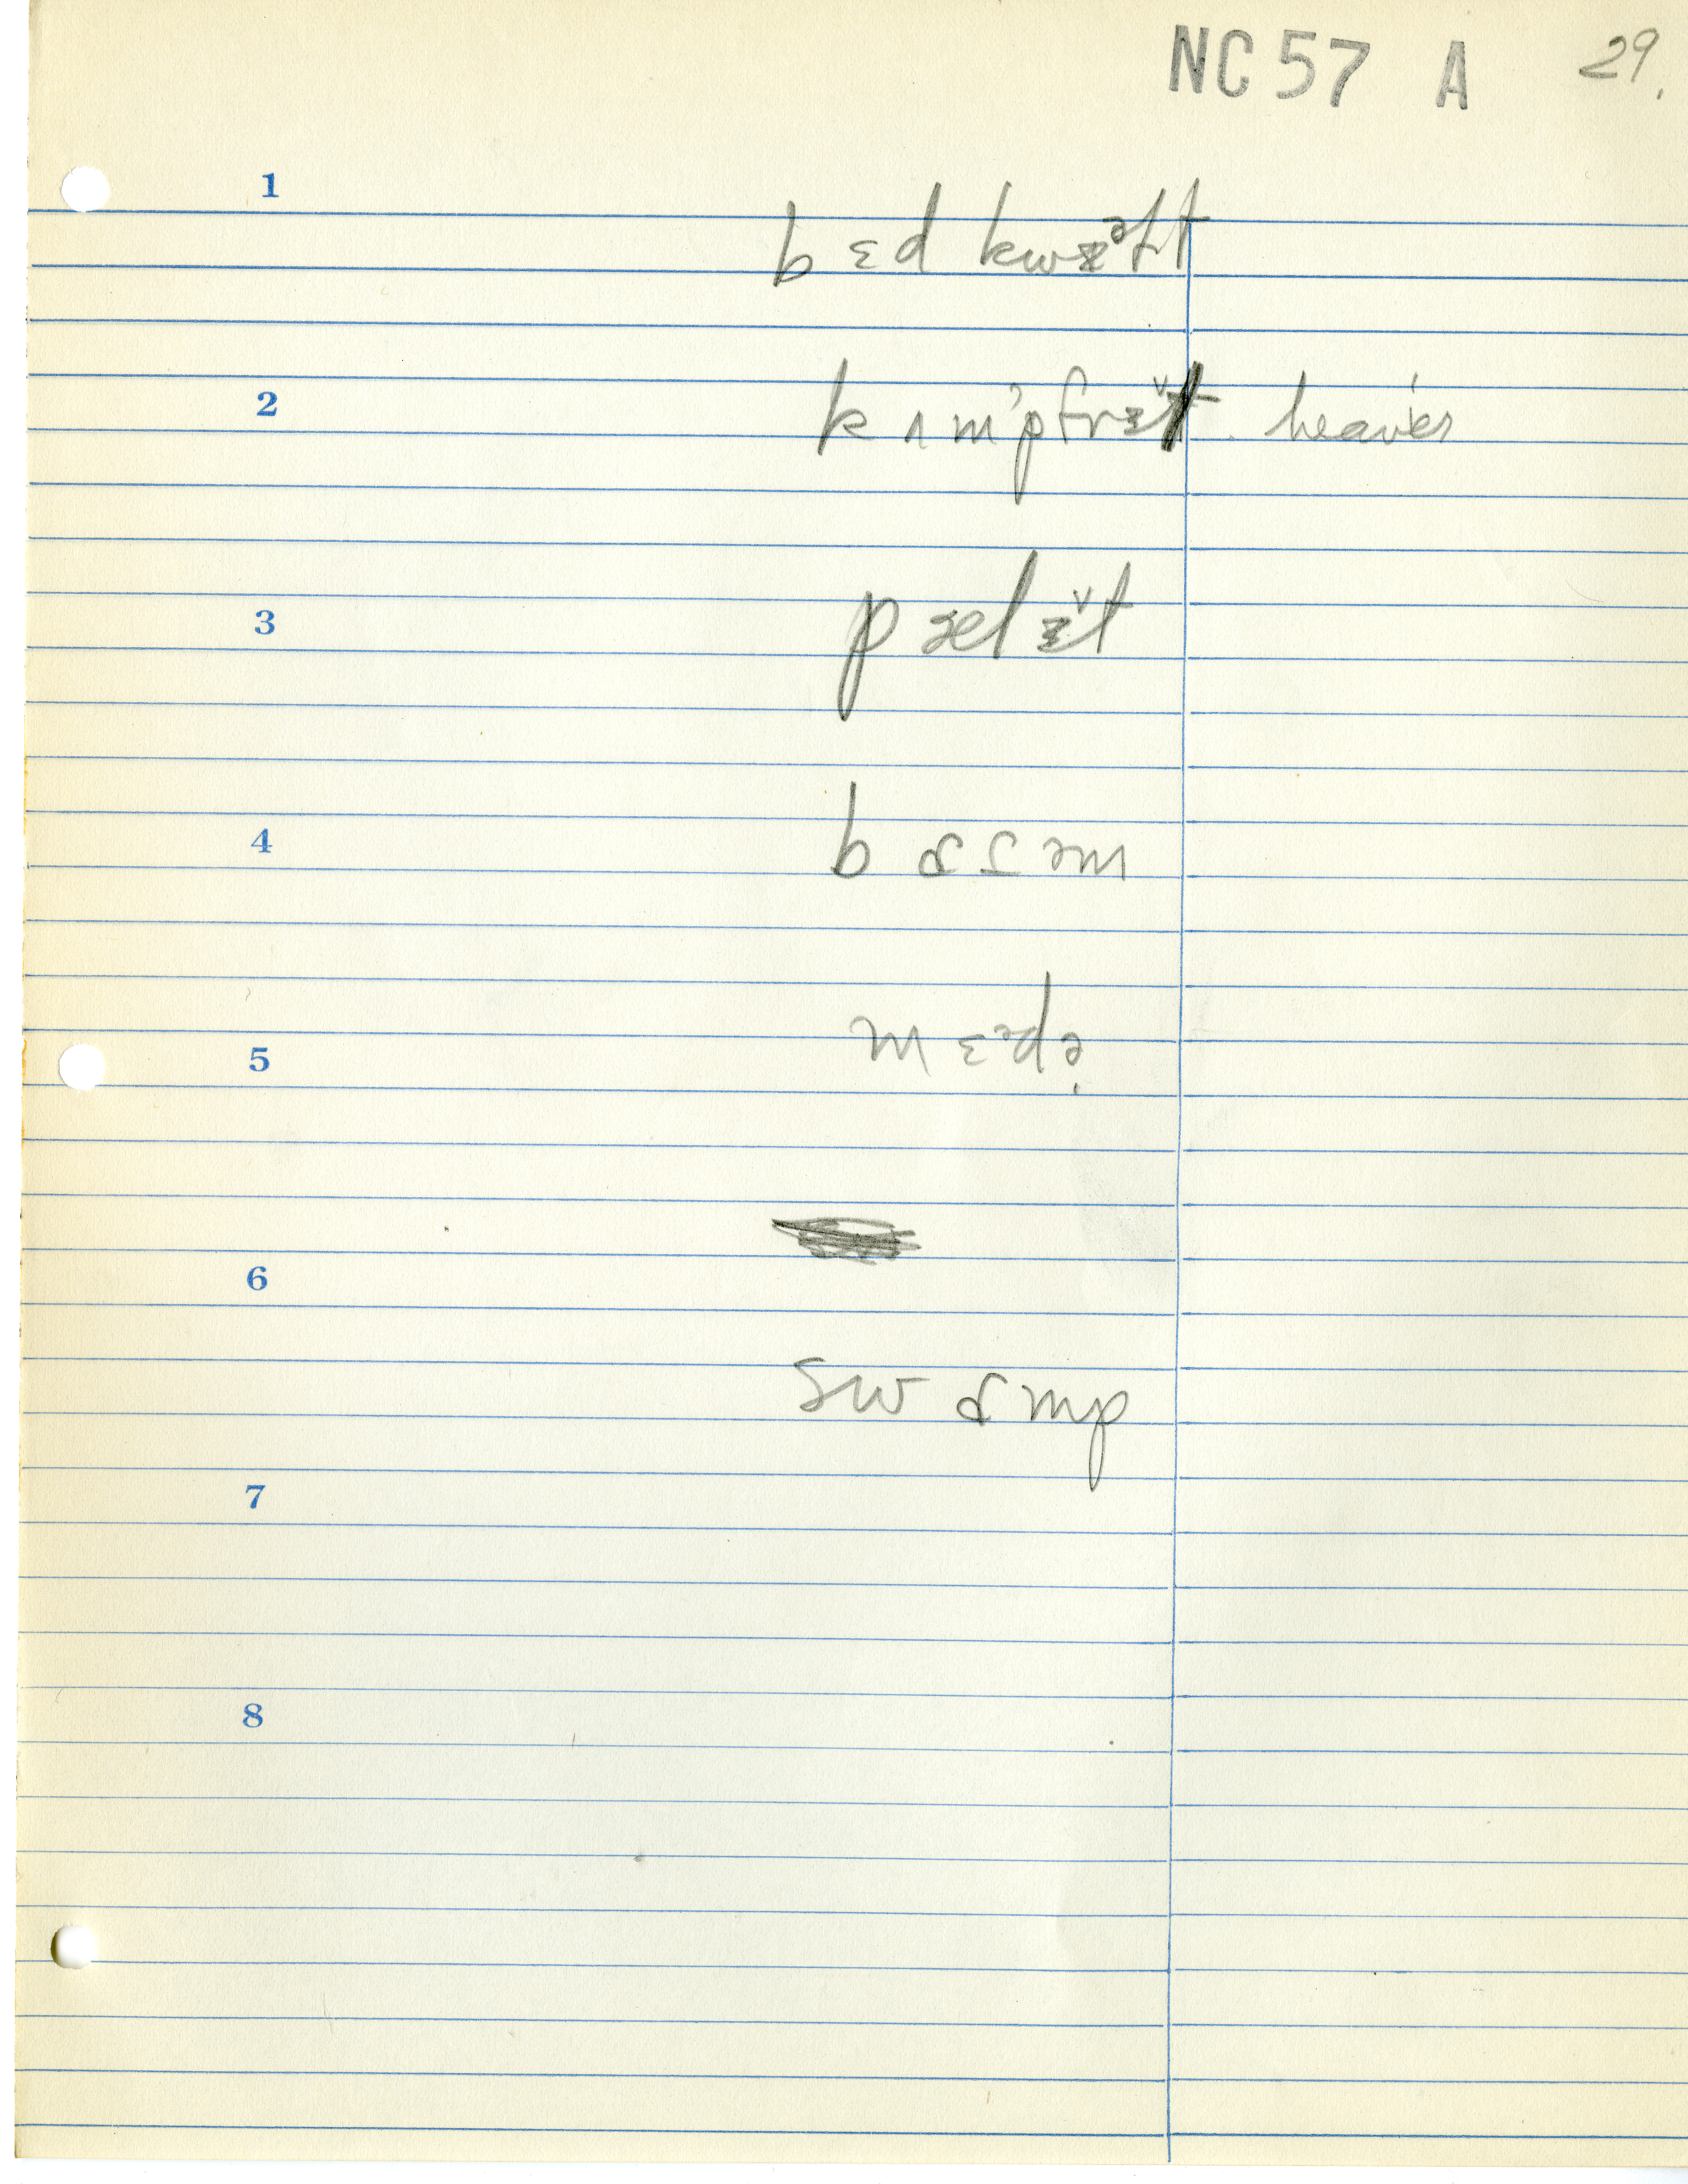 NC 57 A 29.
1
bɛd kwɪᵊlt
2
kʌmfɚt. heavier
3
pælɪt
4
bɑsəm
5
mɛᵊdə
6
swɑmp
7
8